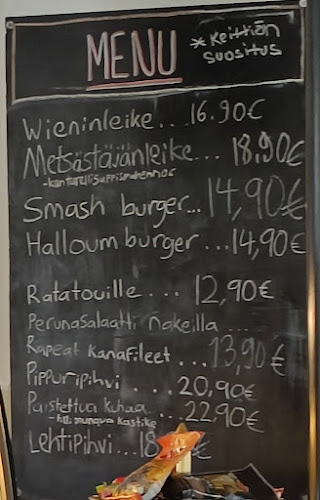 MENU
* Keittiön
suositus
Wieninleike... 16.90€
Metsästäjänleike... 18,90€
Smash burger... 14,90€
Halloum burger ... 14,90€
Ratatouille ... 12,90€
Perunasalaatti nakeilla ...
Rapeat kanafileet ... 13,90€
Pippuripihvi ... 20,90€
Paistettua kuhaa ... 22,90€
kastike
Lehtipihvi... 18 €